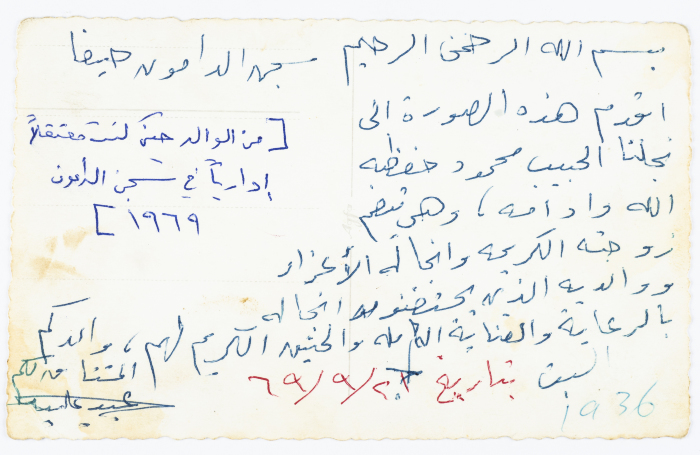 بسم الله الرحمن الرحيم
سجن الدامون حيفا
اقدم هذه الصورة الى
نجلنا الحبيب محمود حفظه
الله وادامه، وهي تضم
زوجته الكريمه وانجاله الأعزاء
ووالديه الذين يحتضنون انجاله
بالرعاية والعناية الكامله والحنين الكريم لهم، والدكم
المشتاق لكم
السبت بتاريخ ٦٩/٩/٢٠
[من الوالد حين كنت معتقلاً
إدارياً في سجن الدامون
١٩٦٩]
1936